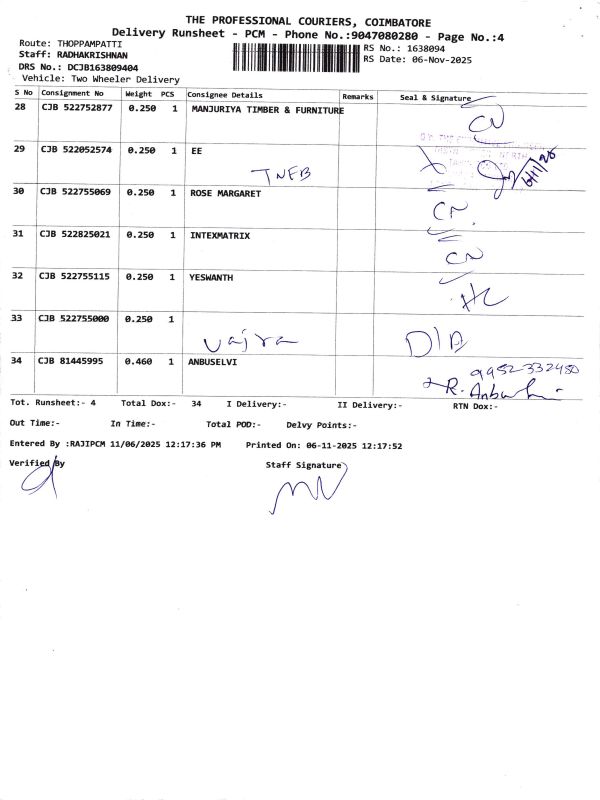 THE PROFESSIONAL COURIERS, COIMBATORE
Delivery Runsheet - PCM - Phone No.:9047080280 - Page No.:4
Route: THOPPAMPATTI
RS No.: 1638094
Staff: RADHAKRISHNAN
RS Date: 06-Nov-2025
DRS No.: DCJB163809404
Vehicle: Two Wheeler Delivery
S No Consignment No Weight PCS Consignee Details Remarks Seal & Signature
28 CJB 522752877 0.250 1 MANJURIYA TIMBER & FURNITURE CN
29 CJB 522052574 0.250 1 EE
TNEB 6/11/25
30 CJB 522755069 0.250 1 ROSE MARGARET
CN
31 CJB 522825021 0.250 1 INTEXMATRIX
CN
32 CJB 522755115 0.250 1 YESWANTH
HC
33 CJB 522755000 0.250 1
Vajra D/B
34 CJB 81445995 0.460 1 ANBUSELVI 9952332480
R. Anbu
Tot. Runsheet:- 4 Total Dox:- 34 I Delivery:- II Delivery:- RTN Dox:-
Out Time:- In Time:- Total POD:- Delvy Points:-
Entered By :RAJIPCM 11/06/2025 12:17:36 PM Printed On: 06-11-2025 12:17:52
Verified By Staff Signature